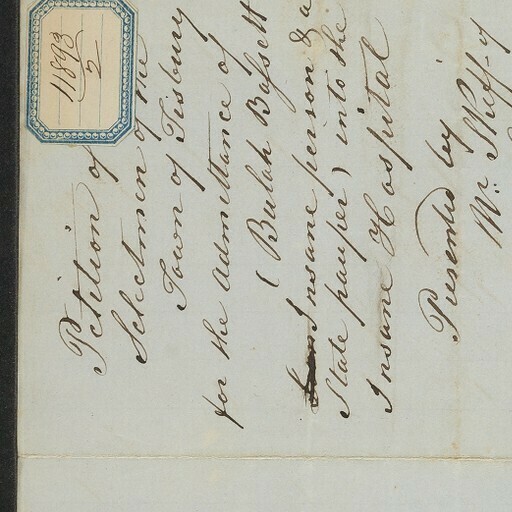 11893/2
Petition of
Selectmen of the
Town of Tisbury
for the admittance of
( Beulah Bassett
Insane person & a
State pauper) into the
Insane Hospital
Presented by
Mr